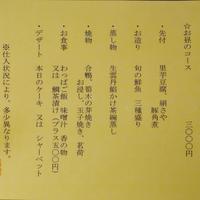 ☆お昼のコース　三〇〇〇円
・先付　里芋豆腐、絹さや、
豚角煮
・お造り　旬の鮮魚　三種盛り
・蒸し物　生雲丹餡かけ茶碗蒸し
・焼物　合鴨、筍木の芽焼き
お浸し、玉子焼き、茗荷
・お食事　わっぱご飯　味噌汁　香の物
又は　鯛茶漬け（プラス五〇〇円）
・デザート　本日のケーキ　又は　シャーベット
※仕入状況により、多少異なります。